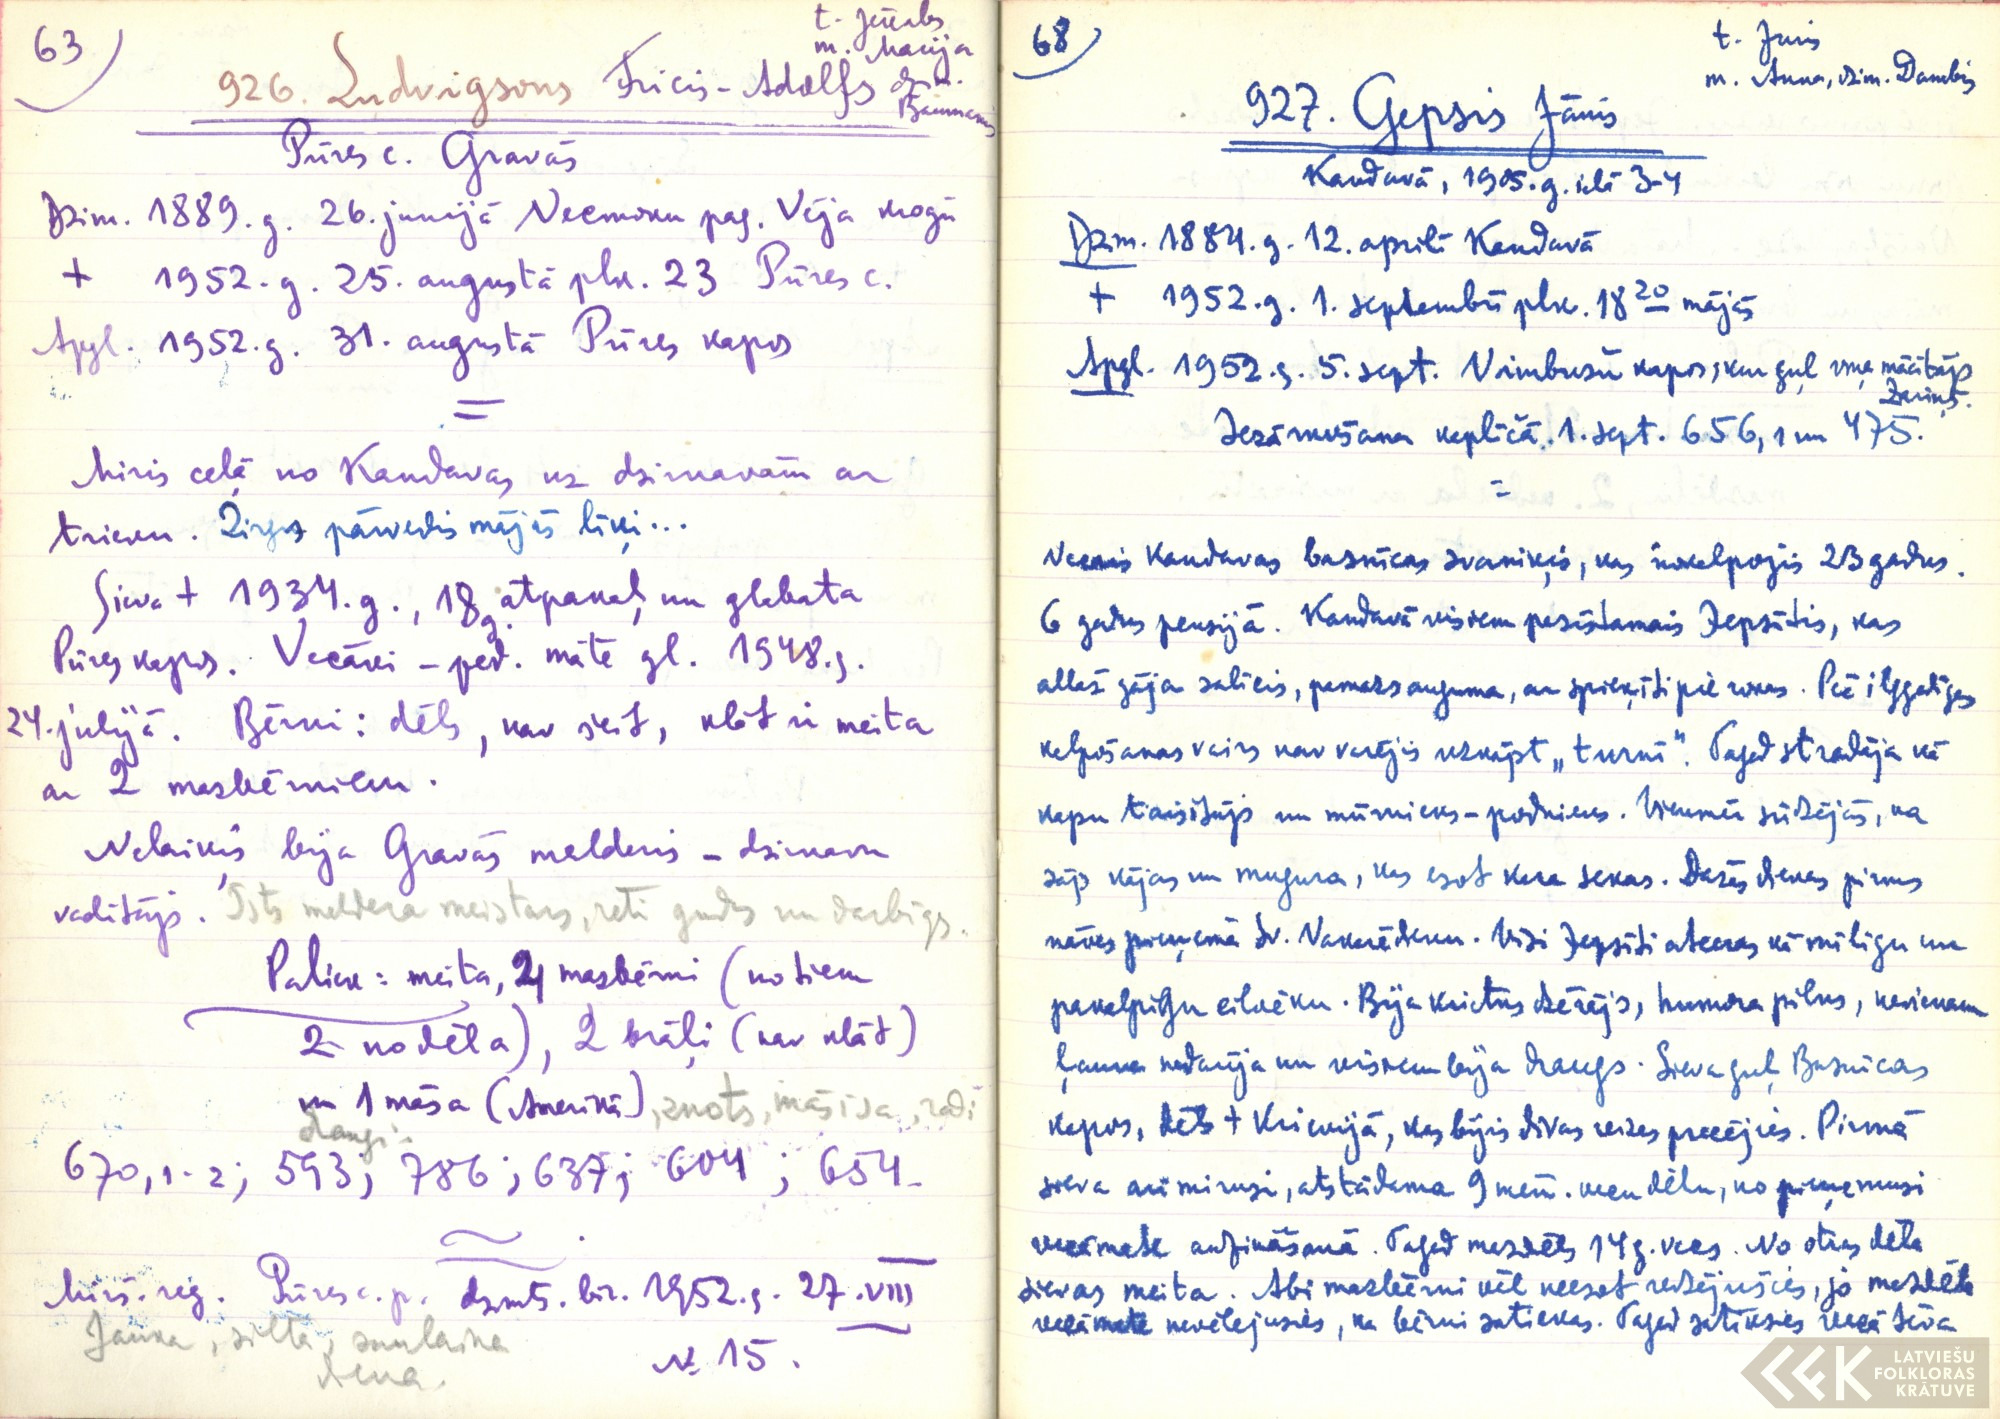 63
t. Jēkabs
m. Marija
dzim.
926. Ludvigsons Fricis-Adolfs
Pūres c. Gravās
Dzim. 1889. g. 26. junijā Vecmoku pag. Vēja krogū
+ 1952. g. 25. augustā plk. 23 Pūres c.
Apgl. 1952. g. 31. augustā Pūres kapos
=
Miris ceļā no Kandavas uz dzirnavām ar
trieku. Zirgs pārvedis mājās līķi...
Sieva + 1934. g., 18 g. atpakaļ un glabāta
Pūres kapos. Vecāki - pēd. māte gl. 1948. g.
24. julijā. Bērni: dēls, nav šeit, klāt ir meita
ar 2 mazbērniem.
Nelaiķis bija Gravās melderis - dzirnavu
vadītājs. Īsts meldera meistars, reti gudrs un darbīgs.
Paliek: meita, 4 mazbērni (no tiem
2 no dēla), 2 brāļi (nav klāt)
un 1 māsa (Amerikā), znots, māsīca, radi
draugi.
670,1-2; 593; 786; 637; 604; 654.
Mirš. reg. Pūres c. p. dzimts. bir. 1952. g. 27. VIII
№ 15.
Jauka, silta, saulaina
diena.
68
t. Juris
m. Anna, dzim. Dambis
927. Gepsis Jānis
Kandavā, 1905. g. ielā 3-4
Dzim. 1884. g. 12. aprilī Kandavā
+ 1952. g. 1. septembrī plk. 18 20 mājās
Apgl. 1952. g. 5. sept. Vimbušu kapos, kur guļ viņa mācītājs
Zariņš.
Iezārkošana kapličā 1. sept. 656,1 un 475.
=
Vecais Kandavas baznīcas zvaniķis, kas nokalpojis 23 gadus.
6 gadus pensijā. Kandavā visiem pazīstamais Jepsītis, kas
allaž gāja salīcis, pamaza auguma, ar spieķīti pie rokas. Pēc ilggadīgas
kalpošanas vairs nav varējis uzkāpt „turnī". Tagad strādāja kā
kapu taisītājs un mūrnieks-podnieks. Vienmēr sūdzējās, ka
sāp kājas un mugura, kas esot kara sekas. Dažas dienas pirms
nāves pieņēmā Sv. Vakarēdienu. Visi Jepsīti atceras kā mīlīgu un
pakalpīgu cilvēku. Bija krietns dzērājs, humora pilns, nevienam
ļauna nedarīja un visiem bija draugs. Sieva guļ Baznīcas
kapos, dēls + Krievijā, kas bijis divas reizes precējies. Pirmā
sieva arī mirusi, atstādama 9 mēn. vecu dēlu, ko pieņēmusi
vecāmāte audzināšanā. Tagad mazdēls 14 g. vecs. No otras dēla
sievas meita. Abi mazbērni vēl neesot redzējušies, jo mazdēla
vecāmāte nevēlējusies, ka bērni satiekas. Tagad satiksies vecā tēva
LATVIEŠU
FOLKLORAS
KRĀTUVE